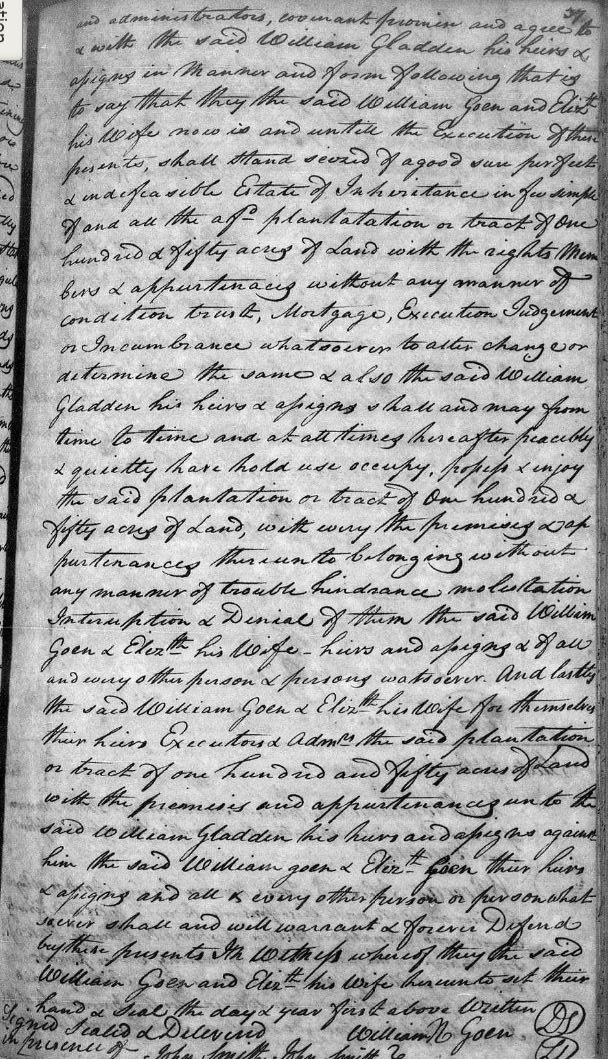 37
and administrators, covenant promen and agree to
& with the said William Gladden his heirs &
assigns in Manner and form following that is
to say that they the said William Goen and Elizth
his Wife now is and untill the Execution of these
presents, shall stand seized of a good sure perfect
& indefeasible Estate of Inheretance in fee simple
of and all the afsd plantatation or tract of One
hundred & fifty acres of Land with the rights Mem
bers & appurtenaces without any manner of
condition trust, Mortgage, Execution Judgement
or Incumbrance whatsoever to alter change or
determine the same & also the said William
Gladden his heirs & assigns shall and may from
time to time and at all times hereafter peacibly
& quietly have hold use occupy, possess & injoy
the said plantation or tract of One hundred &
fifty acres of Land, with every the premises & ap
purtenances thereunto belonging without
any manner of trouble hindrance molistation
Interuption & Denial of them the said William
Goen & Elezth his Wife - heirs and assigns & of all
and every other person & persons watsoever. And lastly
the said William Goen & Elizth his Wife for themselves
their heirs Executors & Admrs the said plantation
or tract of one hundred and fifty acres of Land
with the premises and appurtenances un to the
said William Gladden his heirs and assigns against
him the said William goen & Elezth Goen their heirs
& assigns and all & every other person or person what
soever shall and will warrant & forever Defend
by these presents In Witness whereof they the said
William Goen and Elezth his Wife hereunto set their
hand & Seal the day & year first above Written
Signed Sealed & Delivered William Goen DS
In presence of John Smith John Smith